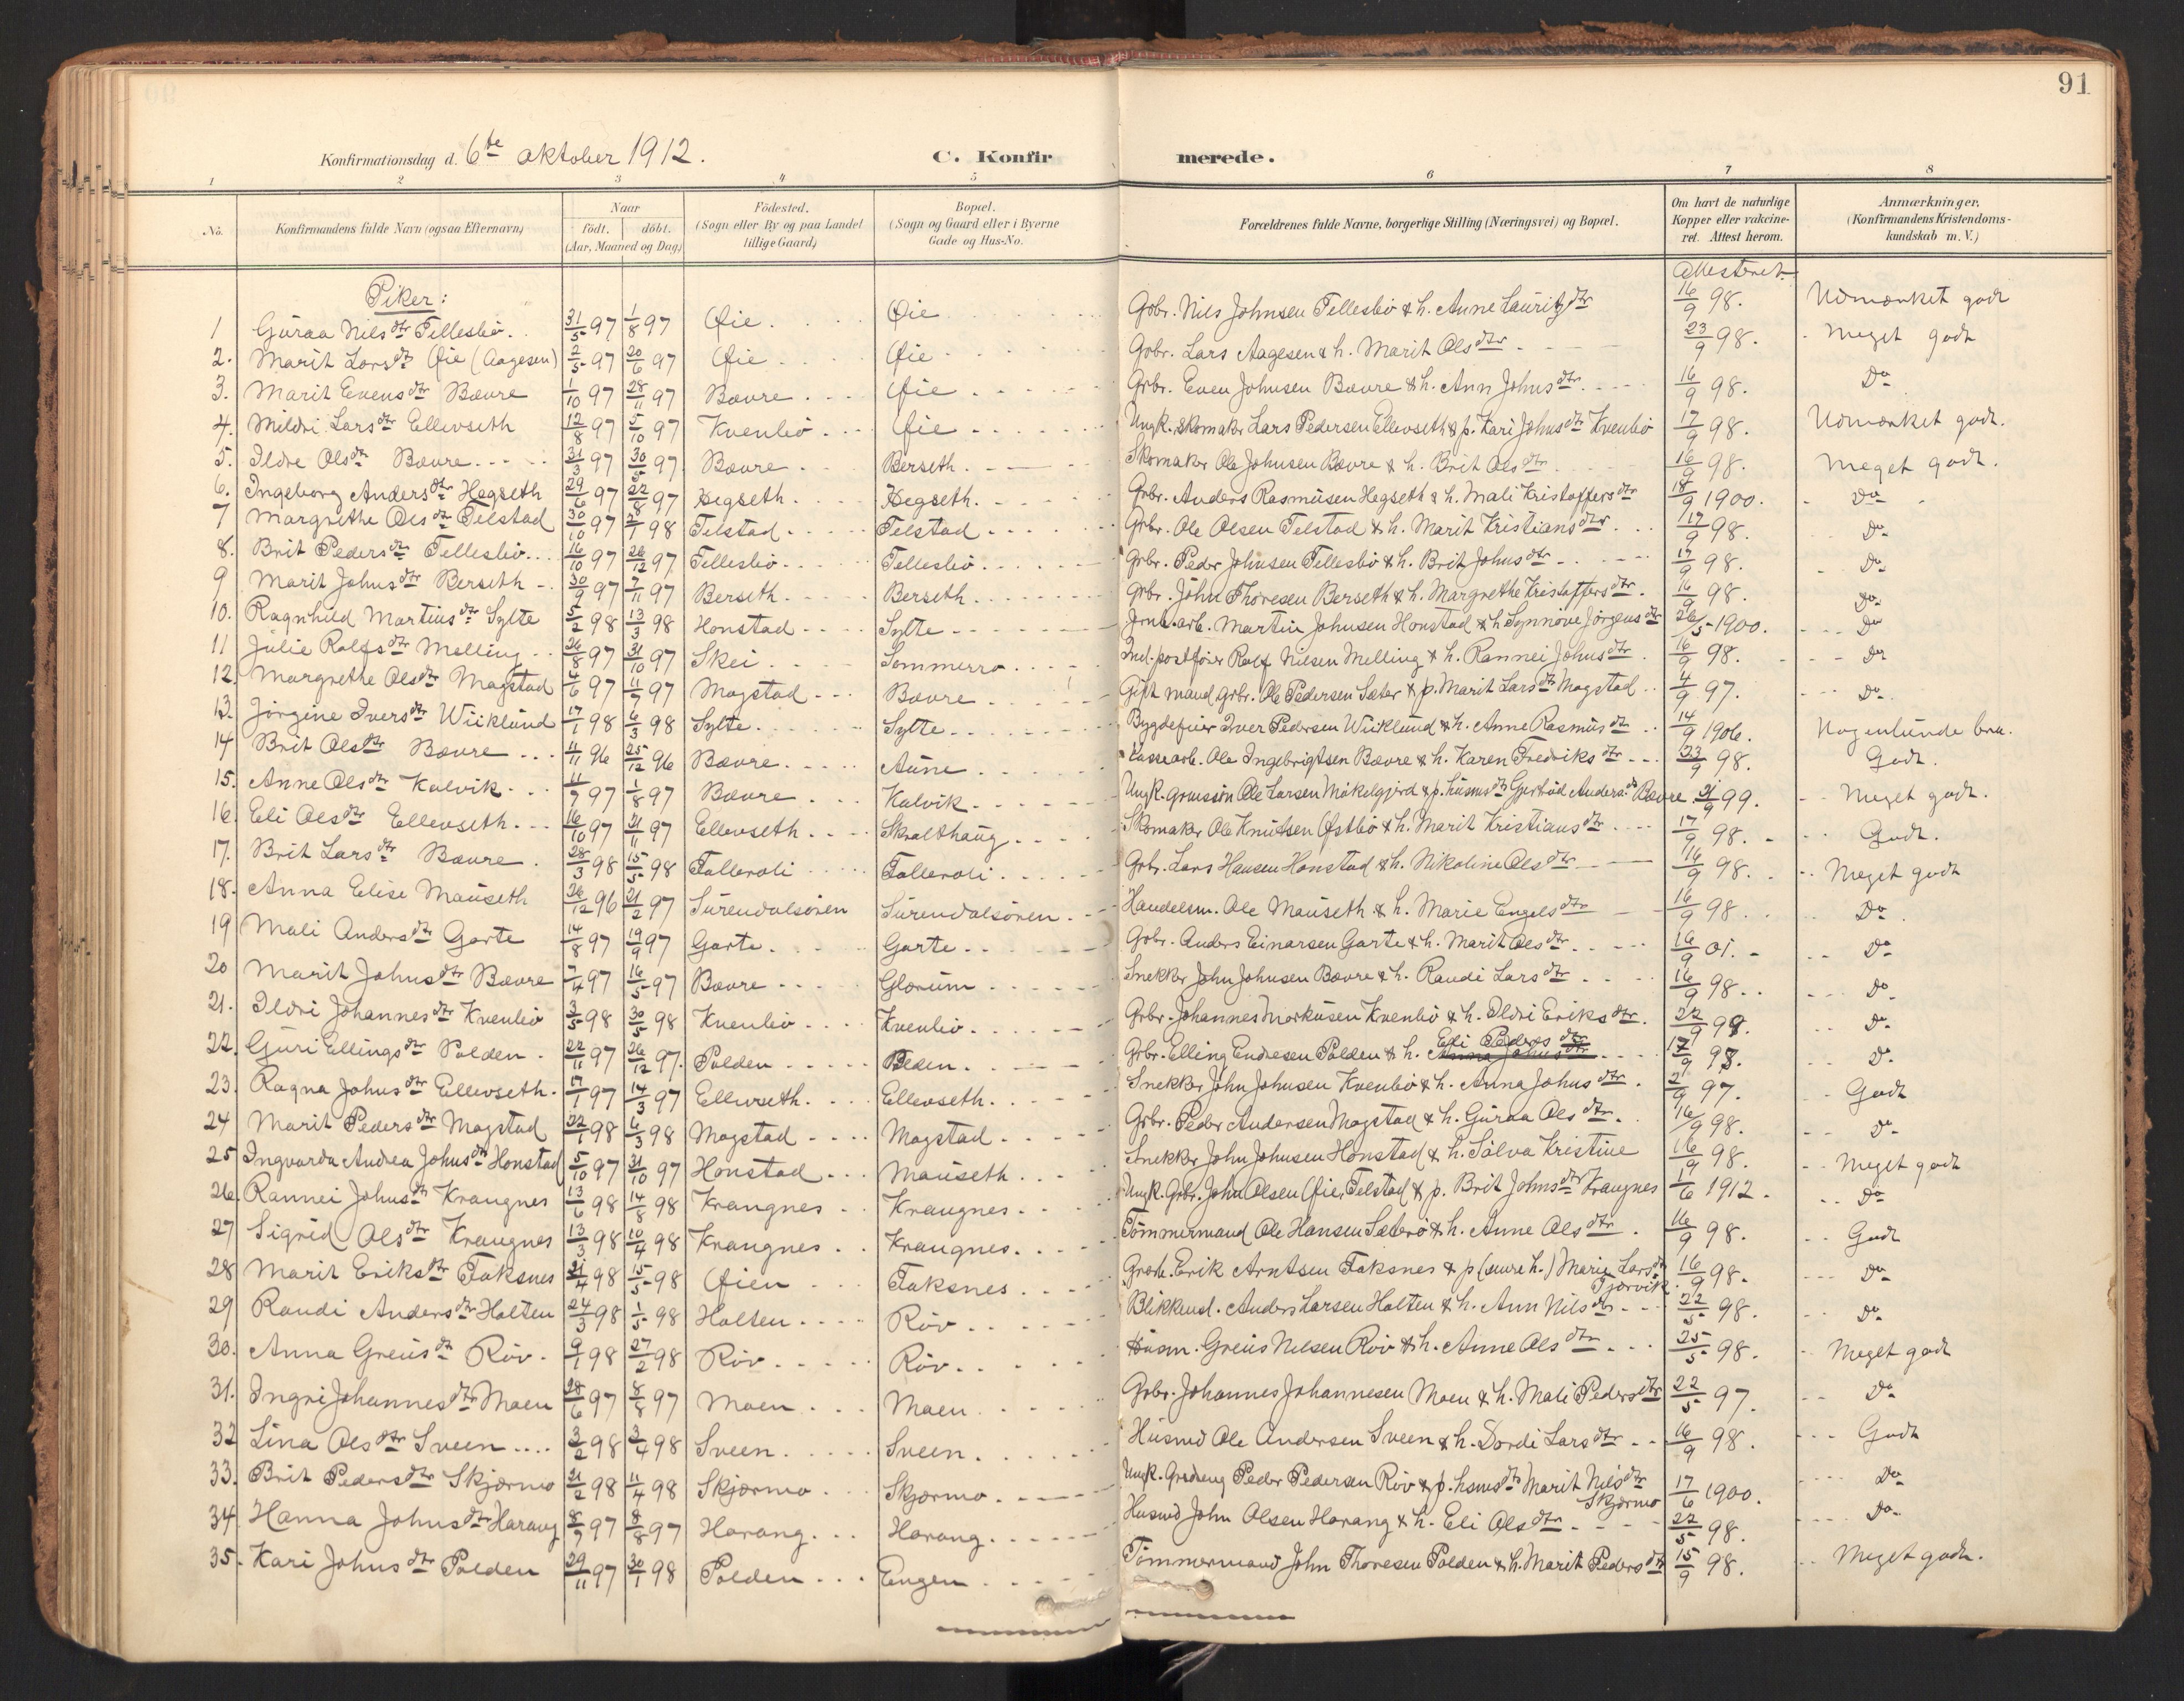 91
Konfirmationsdag d. 6te oktober 1912. C. Konfirmerede.
1 2 3 4 5 6 7 8
No. Konfirmandens fulde Navn (ogsaa Efternavn) Naar født. døbt. (Aar, Maaned og Dag) Fødested. (Sogn eller By og paa Landet tillige Gaard) Bopæl. (Sogn og Gaard eller i Byerne Gade og Hus-No. Forældrenes fulde Navne, borgerlige Stilling (Næringsvei) og Bopæl. Om havt de naturlige Kopper eller vakcineret. Attest herom. Anmærkninger. (Konfirmandens Kristendomskundskab m. V.)
Piker: Attesteret
1 Guraa Nilsdtr Tellesbø. 31/5 97 1/8 97 Øie. Øie Grbr. Nils Johnsen Tellesbø & h. Anne Lauritzdtr 16/9 98. Udmærket godt
2. Marit Larsdtr Øie (Aagesen) 2/5 97 20/6 97 Øie Øie Grbr. Lars Aagesen & h. Marit Olsdtr 23/9 98. Meget godt
3. Marit Evensdtr Bævre 1/10 97 28/11 97 Bævre Øie Grbr. Even Johnsen Bævre & h. Ann Johnsdtr 16/9 98. Do
4. Mildri Larsdtr Ellevseth 12/8 97 5/10 97 Kvenbø Øie Ungk. skomaker Lars Pedersen Ellevseth & p. Kari Johnsdtr Kvenbø 17/9 98. Udmærket godt.
5. Ildre Olsdtr Bævre 31/3 97 30/5 97 Bævre Berseth. Skomaker Ole Johnsen Bævre & h. Brit Olsdtr 16/9 98. Meget godt.
6. Ingeborg Andersdtr Hegseth 29/6 97 22/8 97 Hegseth. Hegseth. Grbr. Anders Rasmusen Hegseth & h. Mali Kristoffersdtr 18/9 1900. Do
7 Margrethe Olsdtr Telstad 30/10 97 98 Telstad Telstad Grbr. Ole Olsen Telstad & h. Marit Kristiansdtr 17/9 98. Do
8. Brit Pedersdtr Tellesbø 16/10 97 26/12 97 Tellesbø Tellesbø Grbr. Peder Johnsen Tellesbø & h. Brit Johnsdtr 17/9 98. Do
9 Marit Johnsdtr Berseth 30/9 97 7/11 97 Berseth Berseth Grbr. John Thoresen Berseth & h. Margrethe Kristoffersdtr. 16/9 98. Do
10. Ragnhild Martinsdtr Sylte 5/2 98 13/3 98 Honstad Sylte Martin Johnsen Honstad & h Synnøve Jørgensdtr 26/5 1900. Do
11 Julie Rolfsdtr Melling 26/8 97 31/10 97 Skei Sommerro Ind. postfører Rolf Nilsen Melling & h. Rannei Johnsdtr 16/9 98. Do
12. Margrethe Olsdtr Magstad 4/6 97 11/7 97 Magstad Bævre Gift mand grbr. Ole Pedersen Sæter & p. Marit Larsdtr Magstad 4/9 97. Do
13. Jørgine Iversdtr Wiiklund 17/1 98 6/3 98 Sylte Sylte Bygdefeier Iver Pedersen Wiiklund & h. Anne Rasmusdtr 14/9 1906. Nogenlunde bra.
14 Brit Olsdtr Bævre 4/11 96 25/12 96 Bævre Aune Ole Ingebrigtsen Bævre & h. Karen Fredriksdtr 23/9 98. Godt.
15. Anne Olsdtr Kalvik 11/7 97 1/8 97 Bævre Kalvik Ungk. Ole Larsen Møkelgjerd & p. husmsdtr Gjertrud Andersdtr Bævre 21/9 99. Meget godt.
16. Eli Olsdtr Ellevseth. 16/10 97 21/11 97 Ellevseth Skralthaug Skomaker Ole Knutsen Østbø & h. Marit Kristiansdtr 17/9 98. Godt.
17. Brit Larsdtr Bævre. 28/3 98 15/5 98 Talleroli Talleroli Grbr. Lars Hansen Honstad & h. Nikoline Olsdtr 16/9 98. Meget godt
18. Anna Elise Mauseth 26/12 96 21/2 97 Surendalsøren Surendalsøren. Handelsm. Ole Mauseth & h. Marie Engelsdtr 16/9 98. Do
19 Mali Andersdtr Garte 14/8 97 19/9 97 Garte. Garte Grbr. Anders Einarsen Garte & h. Marit Olsdtr 16/9 01. Do
20 Marit Johnsdtr Bævre 7/4 97 16/5 97 Bævre Glærum Snekker John Johnsen Bævre & h. Randi Larsdtr 16/9 98. Do
21. Ildri Johannesdtr Kvenbø 3/5 98 30/5 98 Kvenbø Kvenbø Grbr. Johannes Markusen Kvenbø & h. Ildri Eriksdtr. 22/9 98. Do
22. Guri Ellingsdtr Polden. 22/11 97 26/12 97. Polden Polden. Grbr. Elling Endresen Polden & h. Anna Johnsdtr Eli Pedersdtr 17/9 98. Do
23. Ragna Johnsdtr Ellevseth. 17/1 97 14/3 97 Ellevseth. Ellevseth. Snekker John Johnsen Kvenbø & h. Anna Johnsdtr. 2/9 97. Godt
24 Marit Pedersdtr Magstad 22/1 98 6/3 98 Magstad Magstad Grbr. Peder Andersen Magstad & h. Guraa Olsdtr. 16/9 98. Do
25 Ingvarda Andrea Johnsdtr Honstad 5/10 97 31/10 97 Honstad Mauseth Snekker John Johnsen Honstad & h. Sølva Kristine 16/9 98. Meget godt
26. Rannei Johnsdtr Krangnes 13/6 98 14/8 98 Krangnes Krangnes Ungk. Grbr. John Olsen Øien, Telstad & p. Brit Johnsdtr Krangnes 1/6 1912. Do
27 Sigrid Olsdtr Krangnes 13/3 98 10/4 98 Krangnes Krangnes. Tømmermand Ole Hansen Sæterø & h. Anne Olsdtr. 16/9 98. Godt
28 Marit Eriksdtr Taksnes 21/4 98 15/5 98 Øien Taksnes Erik Arntsen Taksnes & p (senere h.) Marie Larsdtr Tjørvik. 16/9 98. Do
29 Randi Andersdtr Holten 24/3 98 1/5 98 Holten Røv Blikkensl. Anders Larsen Holten & h. Ann Nilsdtr 22/5 98. Do
30. Anna Greisdtr Røv. 9/1 98 27/2 98 Røv Røv Husm. Greis Nilsen Røv & h. Anne Olsdtr 25/5 98. Meget godt
31. Ingri Johannesdtr Moen 28/6 97 8/8 97 Moen Moen Grbr. Johannes Johannesen Moen & h. Mali Pedersdtr 22/5 97. Do
32 Lina Olsdtr Sveen 3/2 98 3/4 98 Sveen Sveen Husmd Ole Andersen Sveen & h. Dordi Larsdtr 16/9 98. Godt
33. Brit Pedersdtr Skjærmo 21/2 98 11/4 98 Skjærmo Skjærmo Ungk. Peder Pedersen Røv & p. hsmsdtr Marit Nilsdtr Skjærmo 17/6 1900. Do
34 Hanna Johnsdtr Harang 8/7 97 8/8 97 Harang Harang Husmd John Olsen Harang & h. Eli Olsdtr 22/5 98. Do
35. Kari Johnsdtr Polden 29/11 97 30/1 98 Polden Engen Tømmermand John Thoresen Polden & h. Marit Pedersdtr 15/9 98. Meget godt.